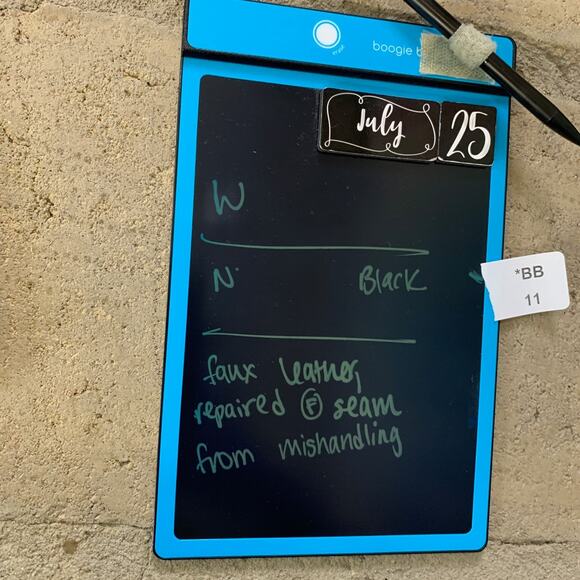 erase
boogie b
July 25
W
N. Black
*BB
11
faux leather,
repaired Ⓕ seam
from mishandling